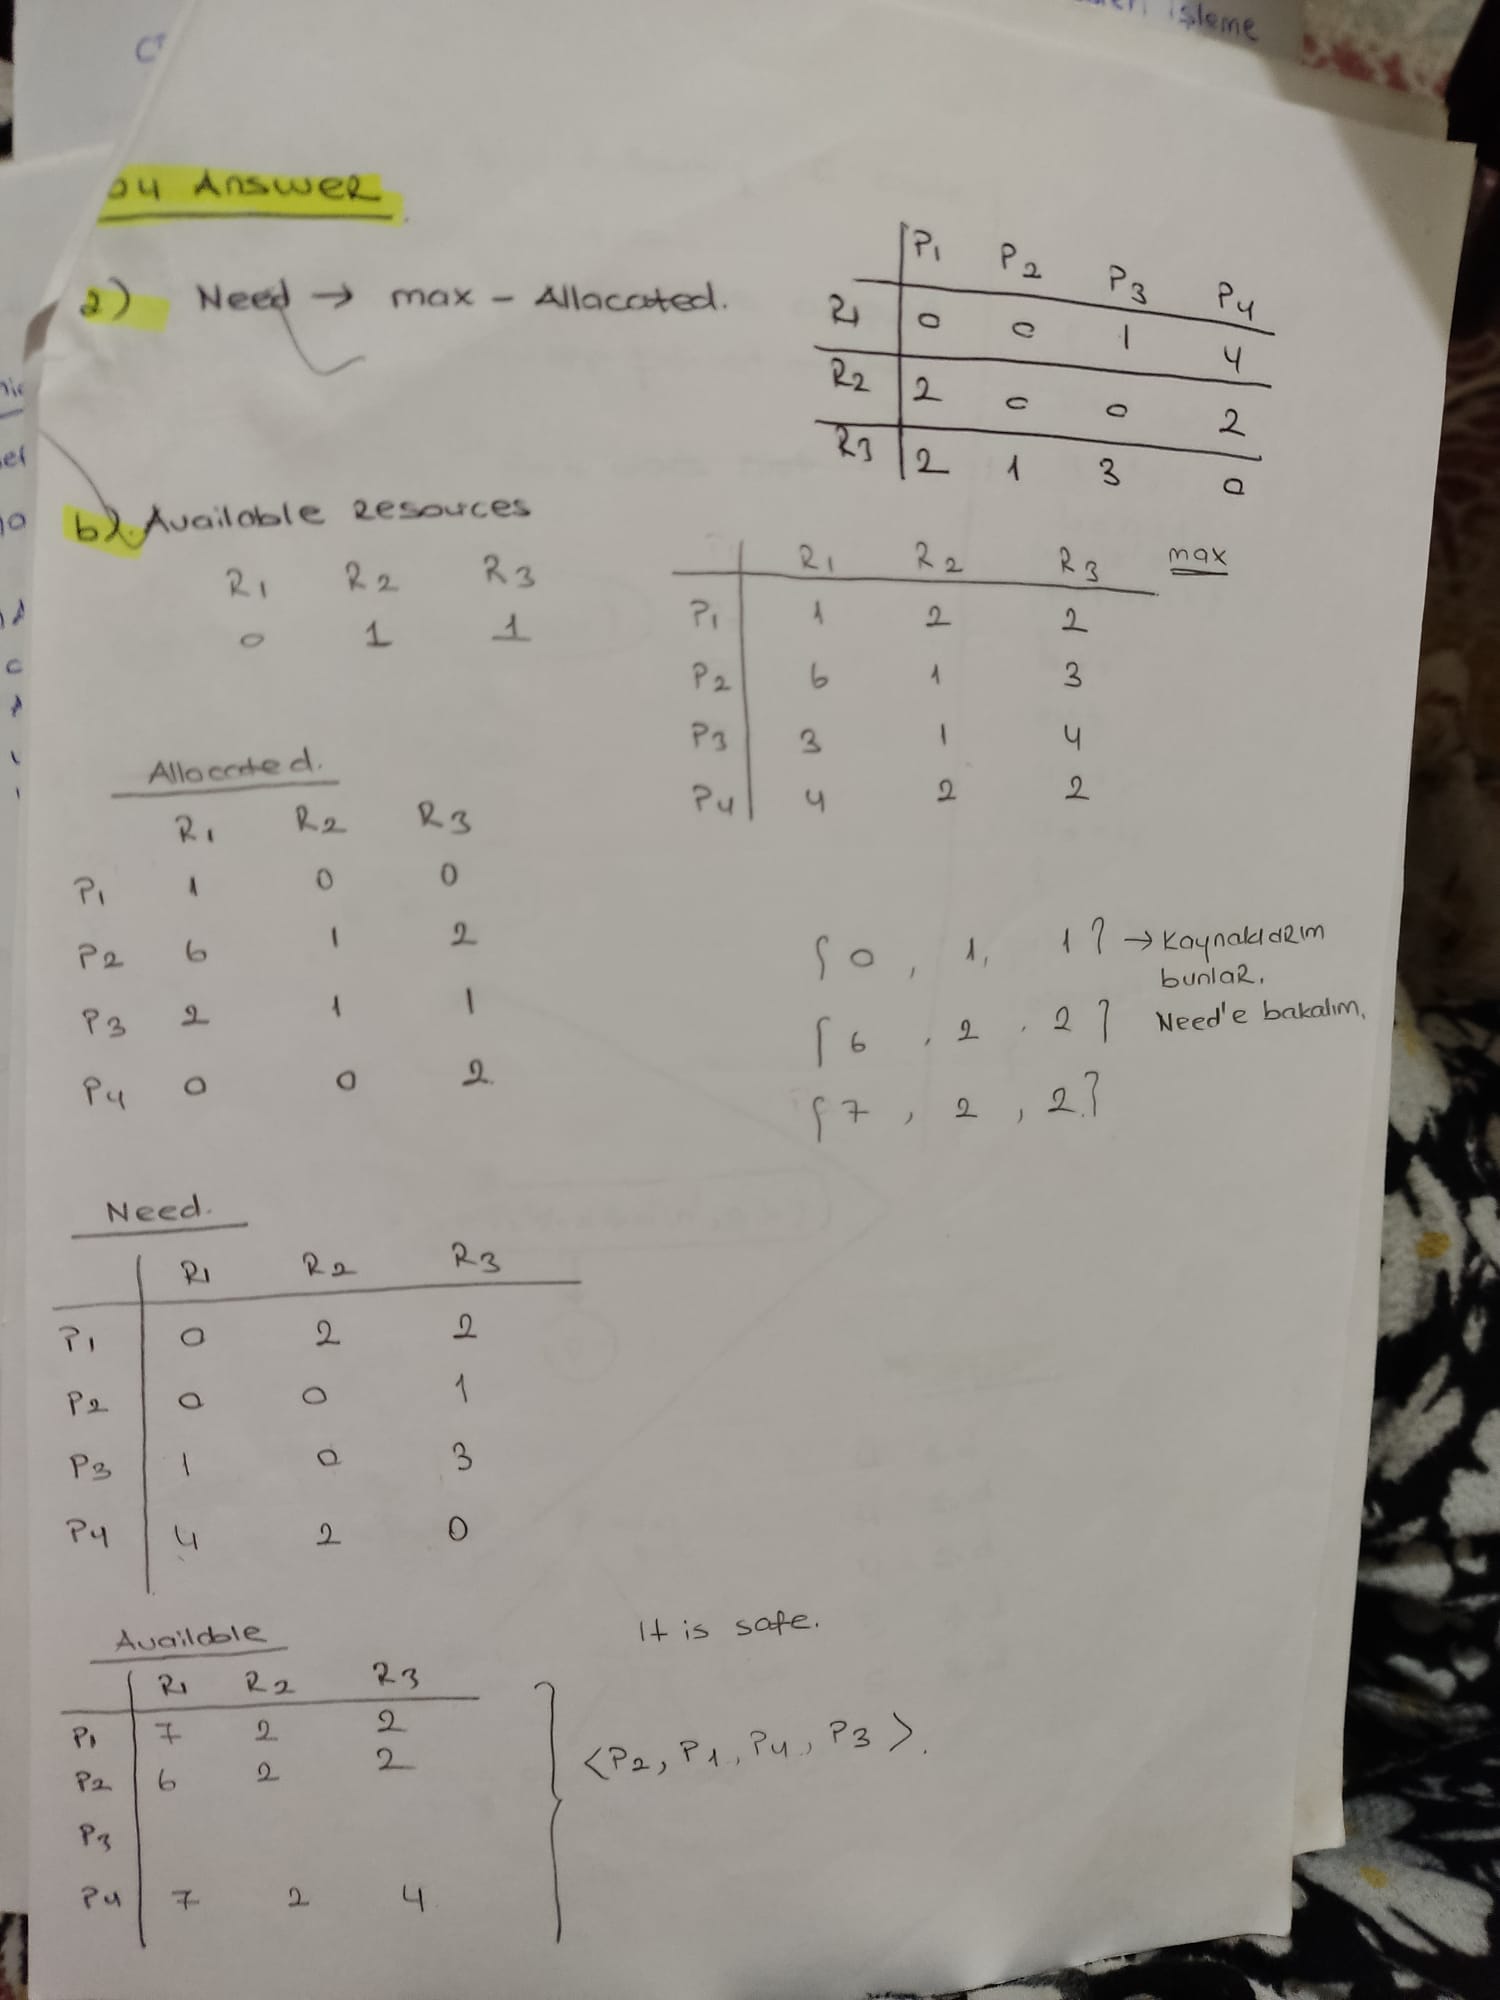 işleme
Answer
a) Need → max - Allacated.
P1 P2 P3 P4
R1 0 0 1 4
R2 2 0 0 2
R3 2 1 3 0
b) Available Resources
R1 R2 R3
0 1 1
R1 R2 R3 max
P1 1 2 2
P2 6 1 3
P3 3 1 4
P4 4 2 2
Allocated.
R1 R2 R3
P1 1 0 0
P2 6 1 2
P3 2 1 1
P4 0 0 2
{0, 1, 1} → Kaynaklarım
bunlar.
{6, 2, 2} Need'e bakalım.
{7, 2, 2}
Need.
R1 R2 R3
P1 0 2 2
P2 0 0 1
P3 1 0 3
P4 4 2 0
Available
R1 R2 R3
P1 7 2 2
P2 6 2 2
P3
P4 7 2 4
It is safe.
<P2, P1, P4, P3>.